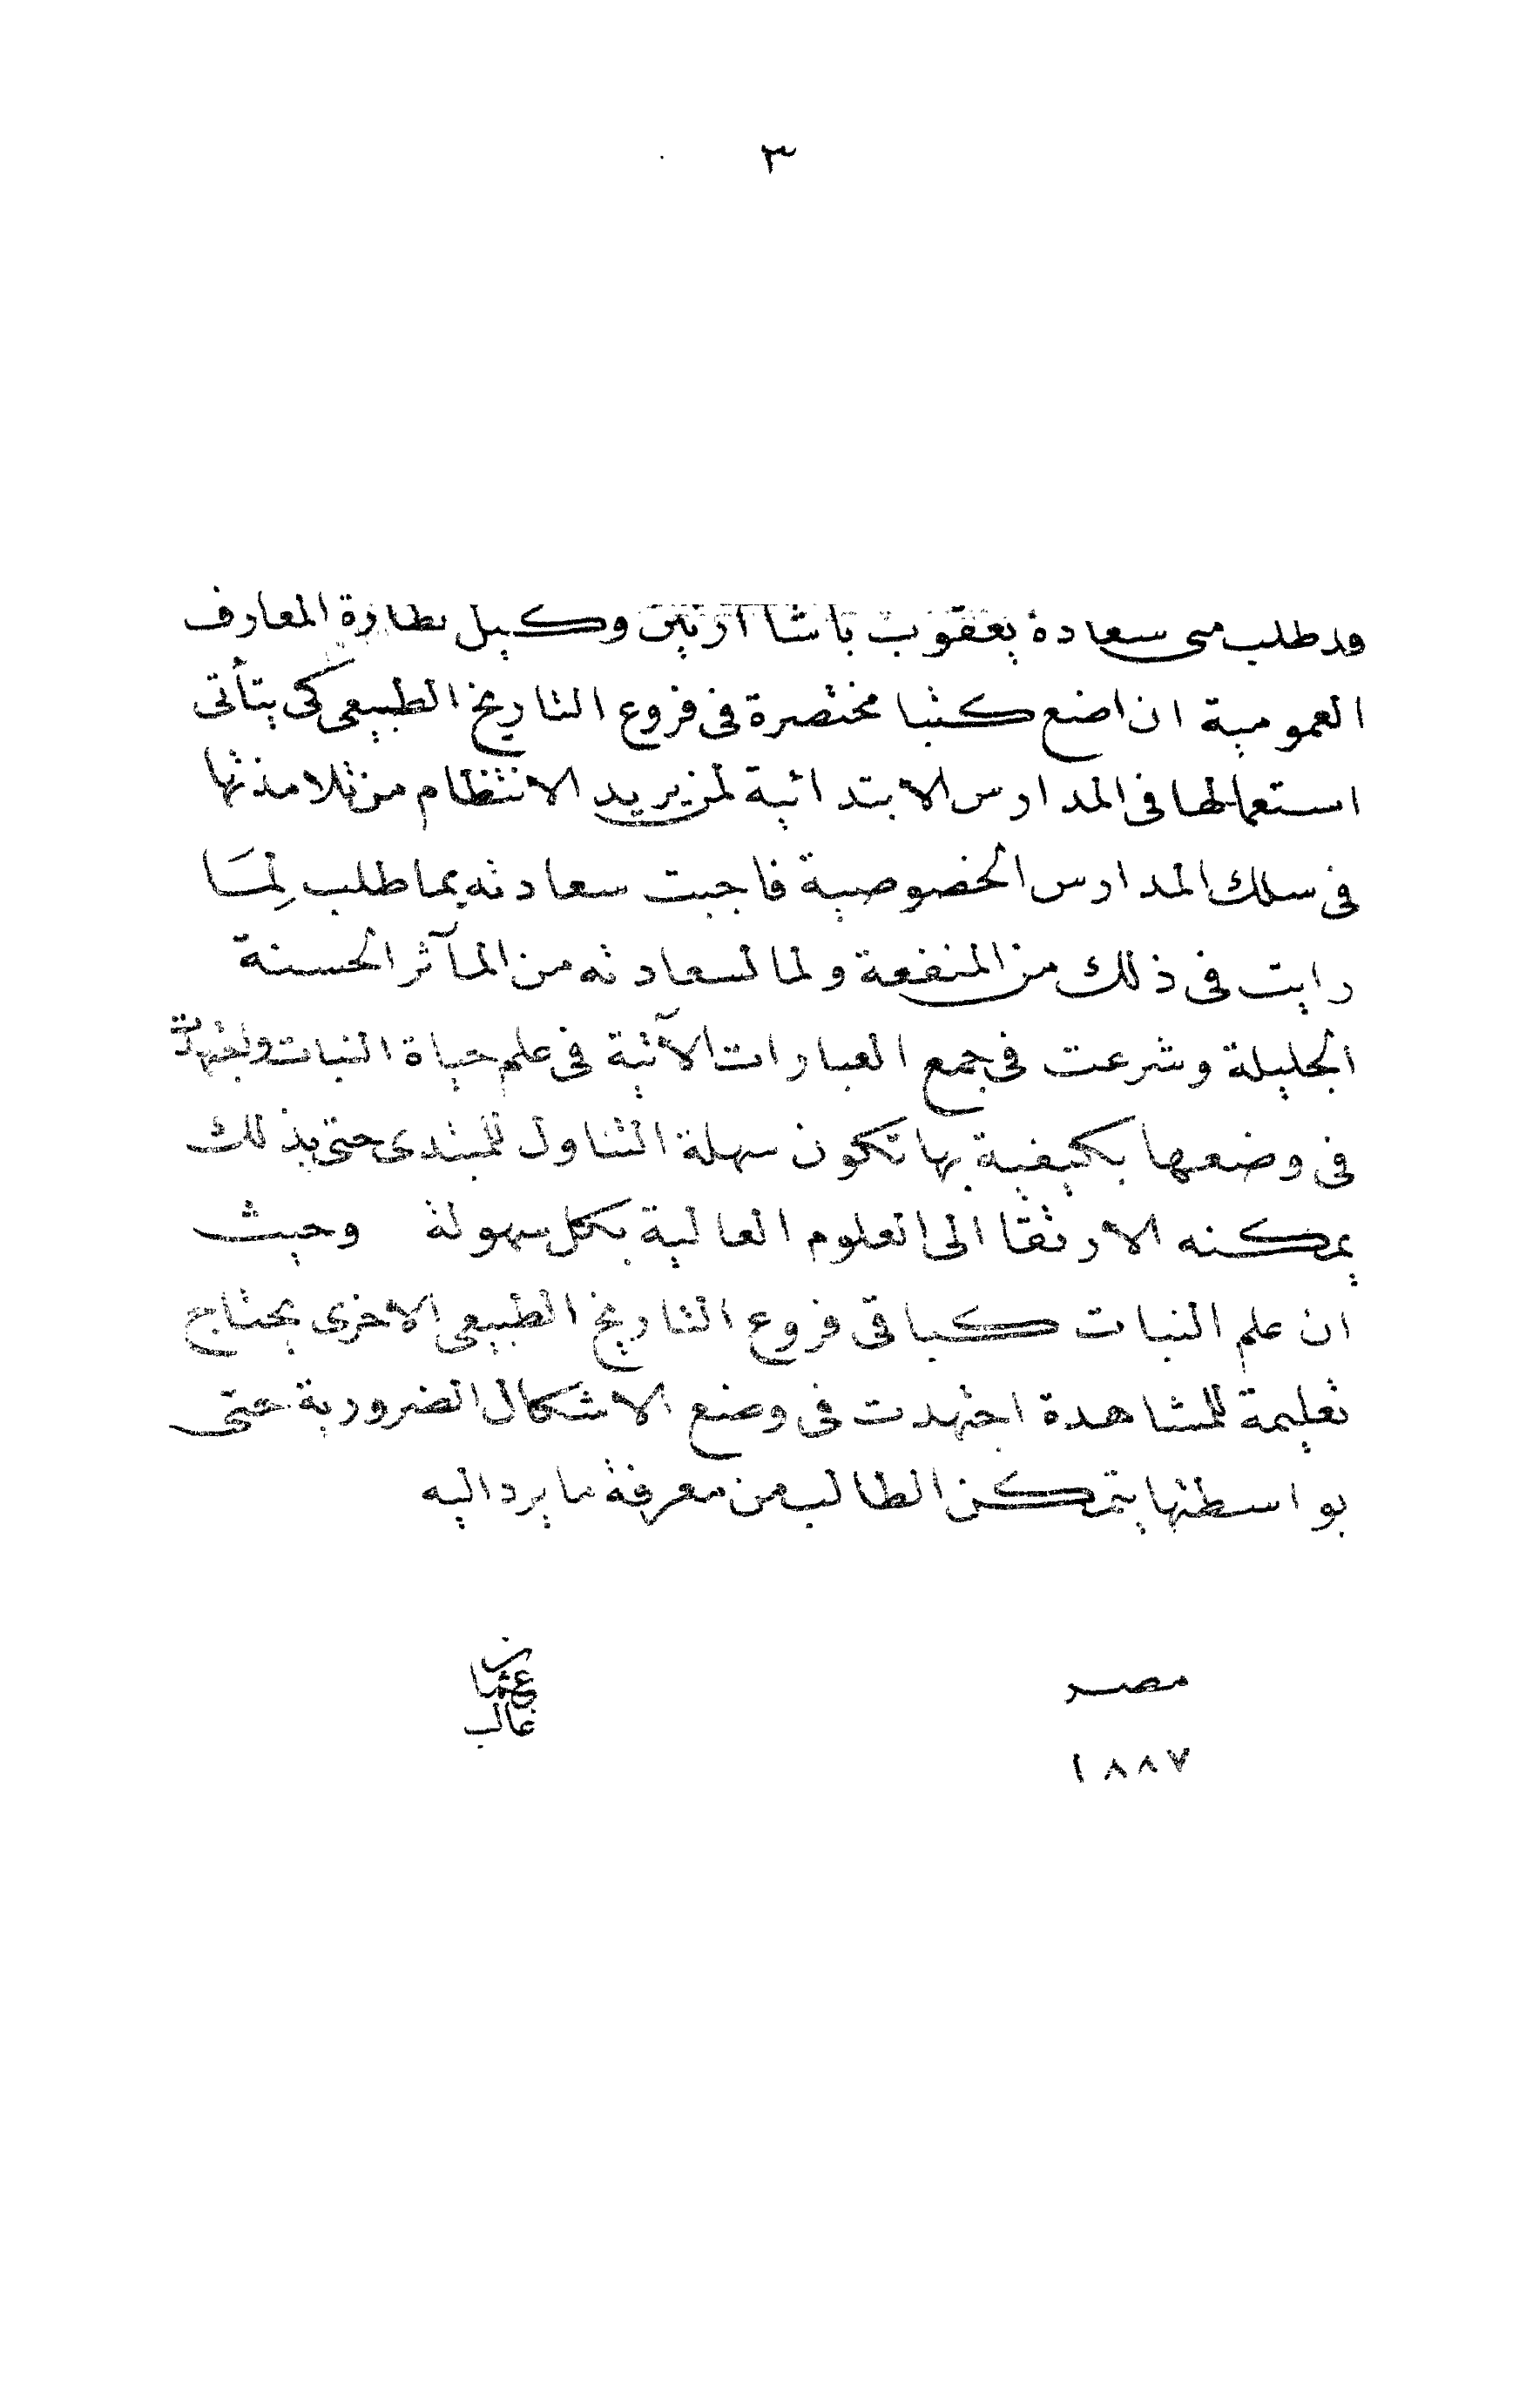 ٣
وقد طلب منى سعادة يعقوب باشا ارتين وكيل نظارة المعارف
العمومية ان اضع كتبا مختصرة فى فروع التاريخ الطبيعى كى يتأتى
استعمالها فى المدارس الابتدائية لمن يريد الانتظام من تلامذتها
فى سلك المدارس الخصوصية فاجبت سعادته بما طلب لِمَا
رايت فى ذلك من المنفعة ولما لسعادته من المآثر الحسنة
الجليلة وشرعت فى جمع العبارات الآتية فى علم حياة النبات واجتهدت
فى وضعها بكيفية بها تكون سهلة التناول للمبتدى حتى بذلك
يمكنه الارتقا الى العلوم العالية بكل سهولة وحيث
ان علم النبات كباقى فروع التاريخ الطبيعى الاخرى يحتاج
تعليمة للمشاهدة اجتهدت فى وضع الاشكال الضرورية حتى
بواسطتها يتمكن الطالب من معرفة ما يرد اليه
مصر
عثمان
غالب
١٨٨٧